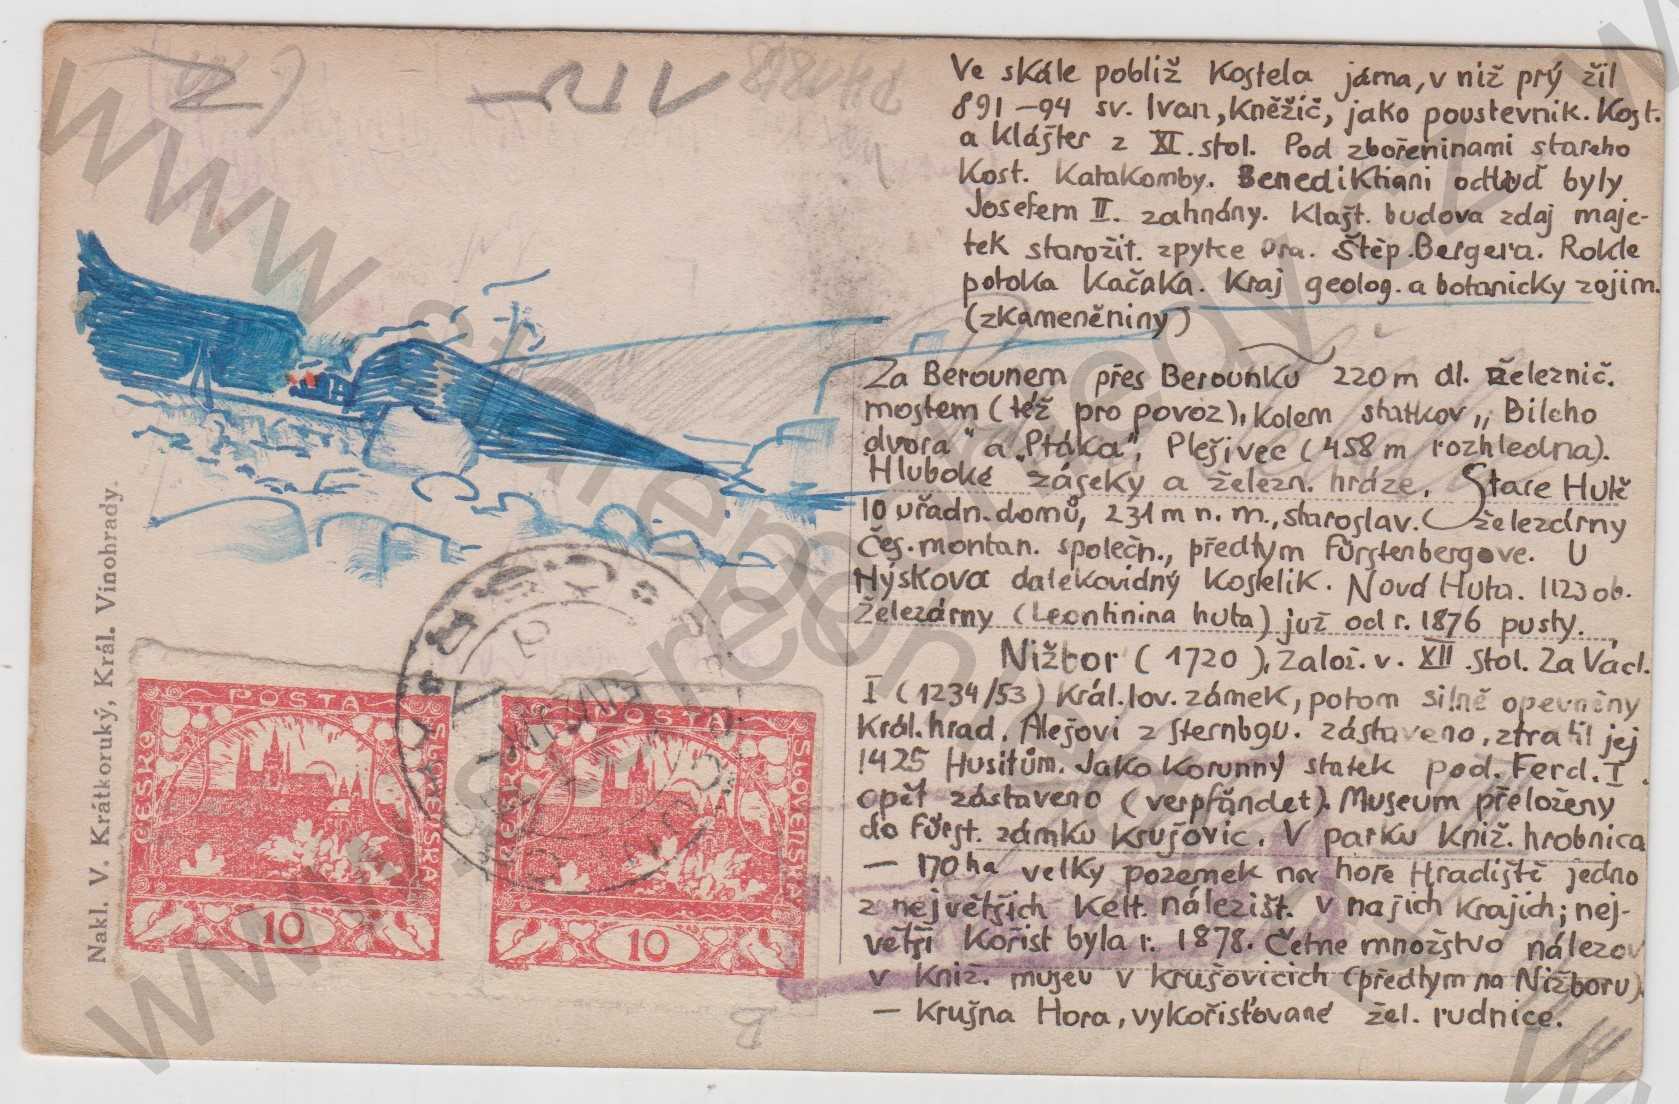 Ve skále pobliž kostela jáma, v niž prý žil
891–94 sv. Ivan, kněžič, jako poustevnik. Kost.
a klášter z XI. stol. Pod zbořeninami stareho
kost. katakomby. Benediktiani odtud byly
Josefem II. zahnány. Klašt. budova zdaj maje-
tek starožit. zpytce Dra. Štěp. Bergera. Rokle
potoka Kačáka. Kraj geolog. a botanicky zajim.
(zkameněniny)
Za Berounem přes Berounku 220 m dl. železnič.
mostem (též pro povoz), kolem statkov „Bileho
dvora" a „Ptáka", Plešivec (458 m rozhledna).
Hluboké zářeky a železn. hráze. Stare Hutě
10 uřádn. domů, 231 m n. m., staroslav. železárny
Čes. montan. společn., předtym Fürstenbergove. U
Hýskova dalekovidný kostelik. Nová Huta. 1123 ob.
Železárny (Leontinina huta) již od r. 1876 pusty.
Nižbor (1720), Založ. v. XII. stol. Za Václ.
I (1234/53) král. lov. zámek, potom silně opevněny
král. hrad. Alešovi z Šternbgu. zástaveno, ztratil jej
1425 Husitům. Jako korunný statek pod. Ferd. I.
opět zástaveno (verpfändet). Museum přeloženy
do Fürst. zámku Krušovic. V parku kniž. hrobnica
— 170 ha velky pozemek na hoře Hradiště jedno
z největšich kelt. nálezišt. v najich krajich; nej-
větši kořist byla r. 1878. Četne množstvo nálezov
v kniž. museu v Krušovicich (předtym na Nižboru).
— Krušna Hora, vykořisťované žel. rudnice.
Nakl. V. Krátkoruký, Král. Vinohrady.
POŠTA
ČESKO
SLOVENSKÁ
10
POŠTA
ČESKO
SLOVENSKÁ
10
B
www.starepohledy.cz